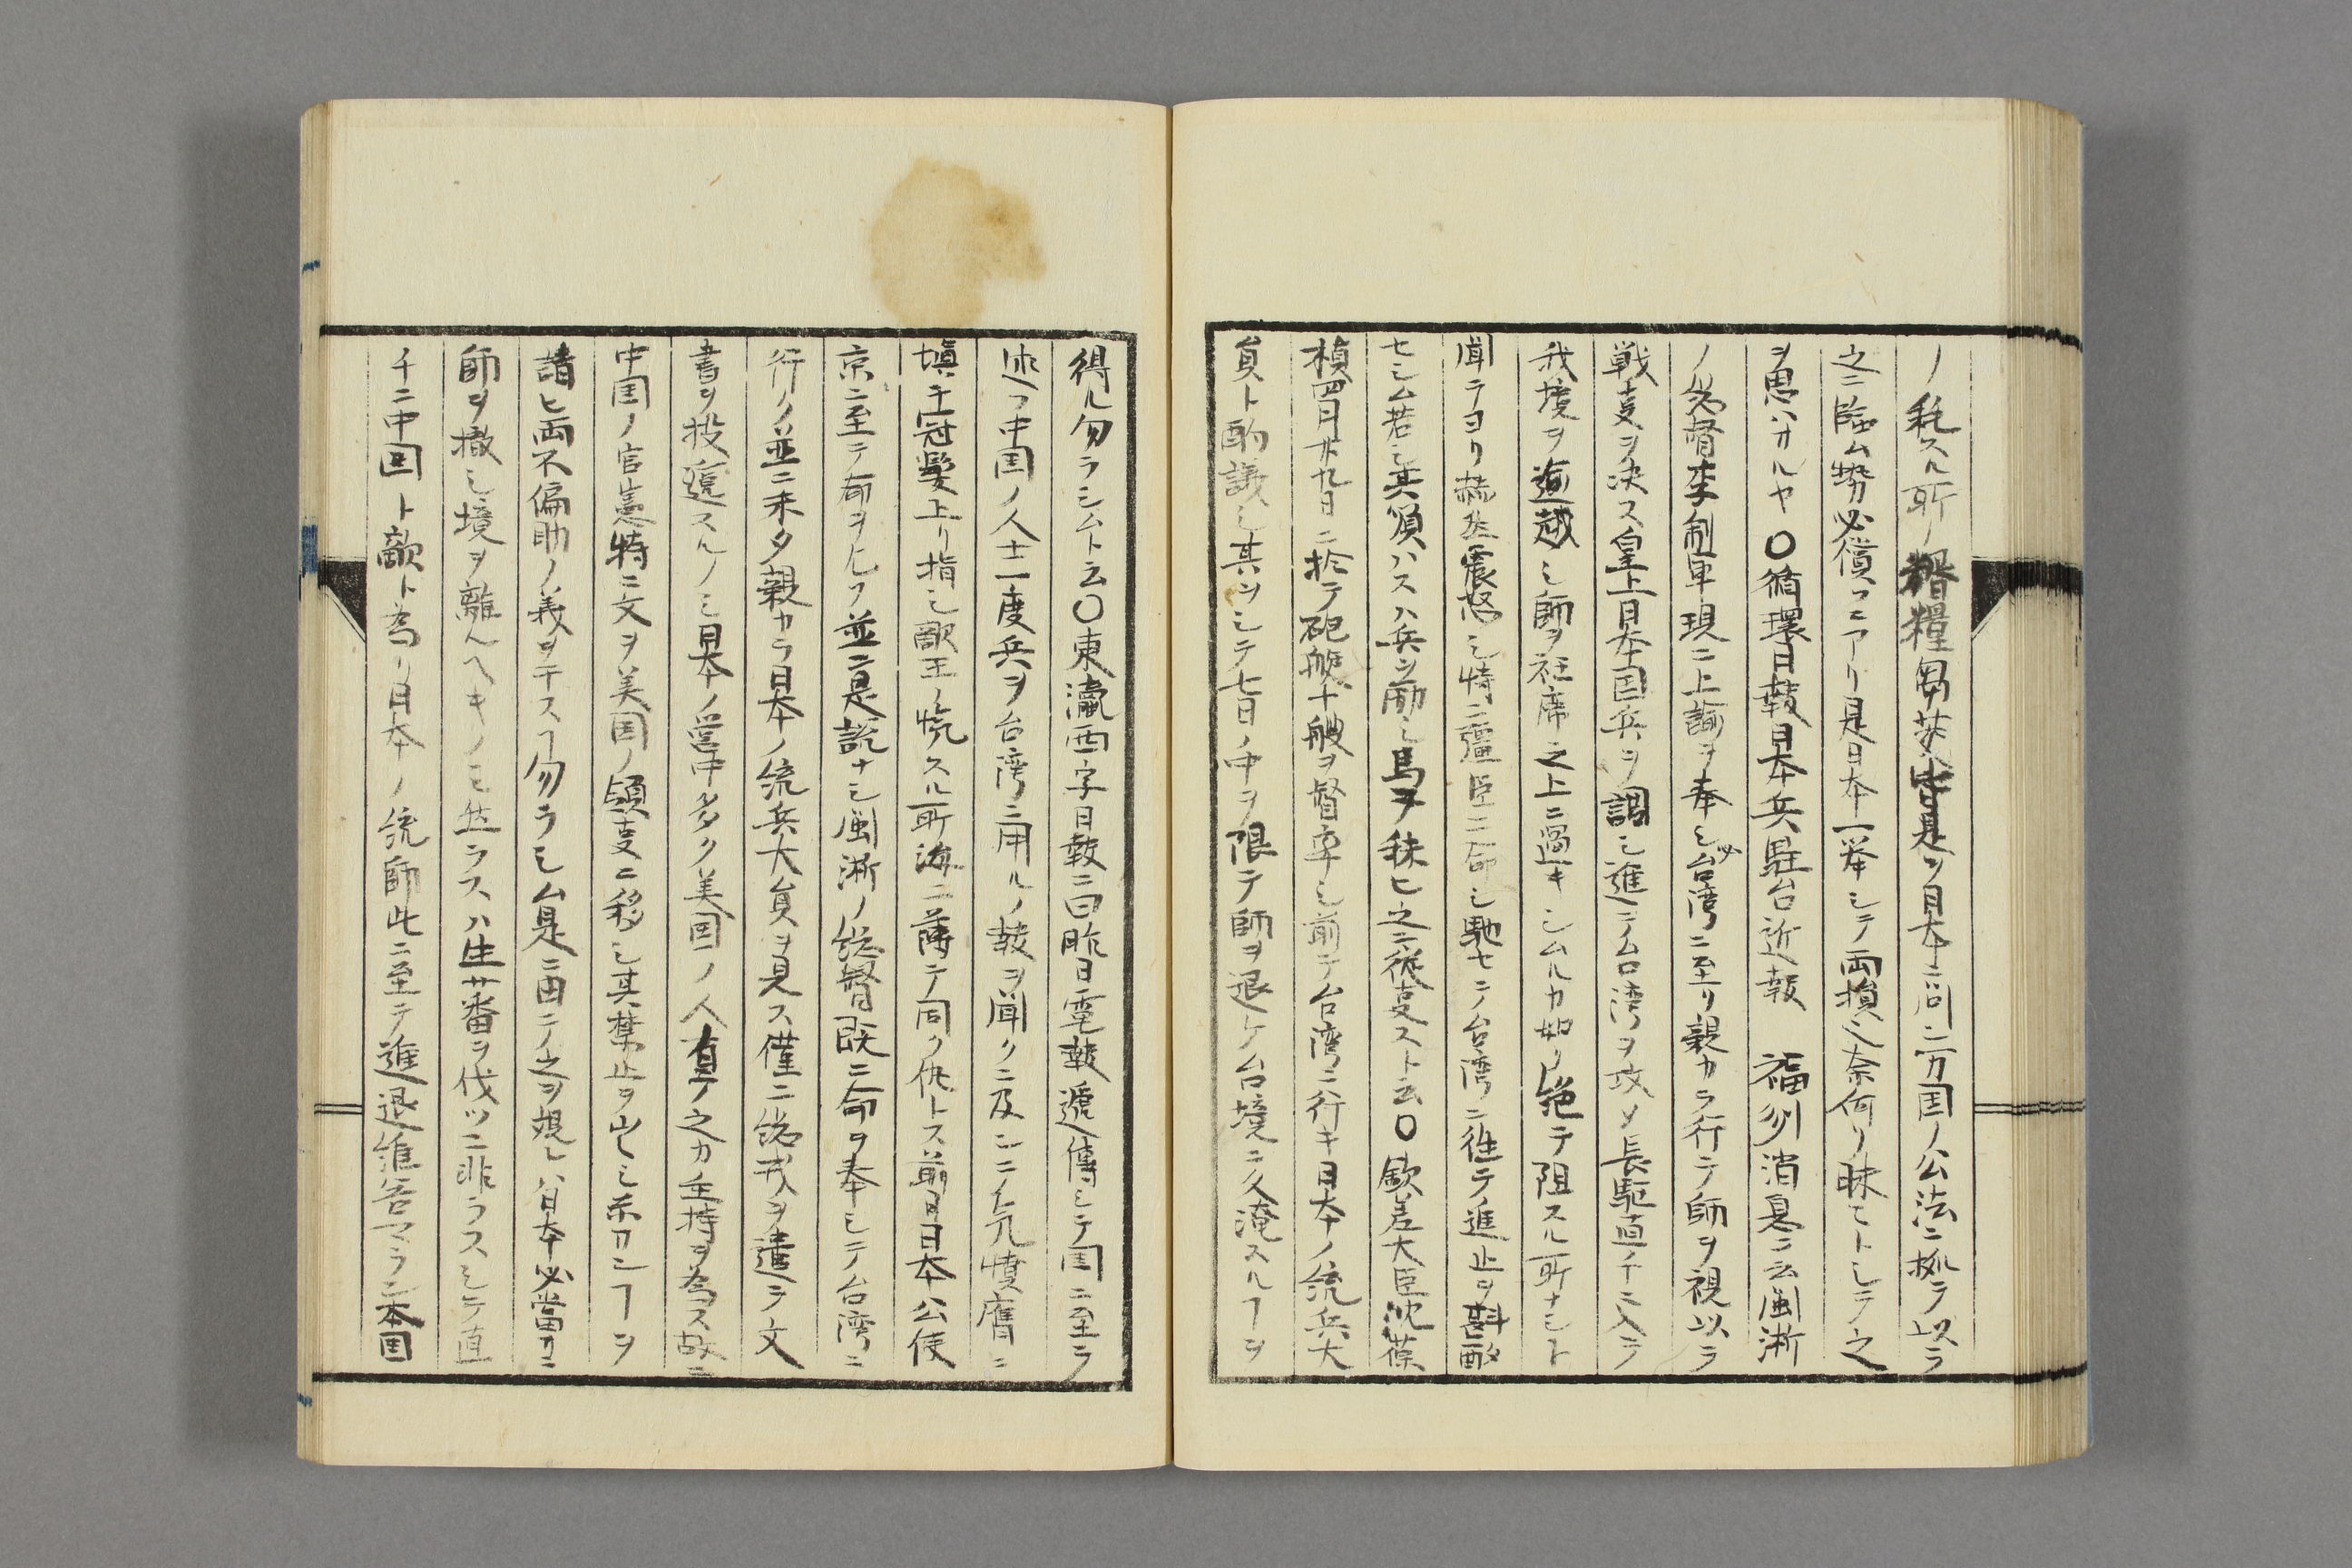 ノ耗スル所ノ糈糧芻茭皆是ヲ日本ニ問ニ万国ノ公法ニ拠テ以テ
之ニ臨ム勢必償フニアリ是日本一挙シテ両損之奈何ソ昧トシテ之
ヲ思ハサルヤ〇循環日報日本兵駐台近報 福州消息ニ云閩浙
ノ総督李制軍現ニ上諭ヲ奉シ台湾ニ至リ親カラ行テ師ヲ視以テ
戦支ヲ決ス皇上日本国兵ヲ調シ進テ台湾ヲ攻メ長駆直チニ入テ
我境ヲ逾越シ師ヲ衽席之上ニ過キシムルカ如ク絶テ阻スル所ナシト
聞テヨリ赫然震怒シ特ニ疆臣ニ命シ馳セテ台湾ニ往テ進止ヲ斟酌
セシム若シ其須ハスハ兵ヲ励シ馬ヲ秣ヒ之ニ従支スト云〇欽差大臣沈葆
楨四月廿九日ニ於テ砲艇十艘ヲ督率シ前テ台湾ニ行キ日本ノ統兵大
員ト酌議シ其ヲシテ七日ノ中ヲ限テ師ヲ退ケ台境ニ久淹スルヿヲ
得ル勿ラシムト云〇東瀛西字日報ニ曰昨日電報逓傳シテ国ニ至ラ
述フ中国ノ人士一度兵ヲ台湾ニ用ルノ報ヲ聞クニ及ンテ気憤膺ニ
塡チ冠髪上リ指シ敵王ノ愾スル所海ニ薄テ同ク仇トス前日日本公使
京ニ至テ命ヲ凡フ並ニ是説ナシ閩浙ノ総督既ニ命ヲ奉シテ台湾ニ
行ノ並ニ未タ親カラ日本ノ統兵大員ヲ見ス僅ニ総戎ヲ遣テ文
書ヲ投逓スルノミ日本ノ営中多ク美国ノ人有テ之カ主持ヲ為ス故ニ
中国ノ官憲特ニ文ヲ美国ノ領支ニ移シ其禁止ヲ出シ示サンヿヲ
請ヒ両不偏助ノ義ヲ干スヿ勿ラシム是ニ由テ之ヲ規レハ日本必當サニ
師ヲ撤シ境ヲ離ルヘキノミ然ラスハ生番ヲ伐ツニ非ラスシテ直
チニ中国ト敵ト為リ日本ノ統師此ニ至テ進退維谷マラン本国